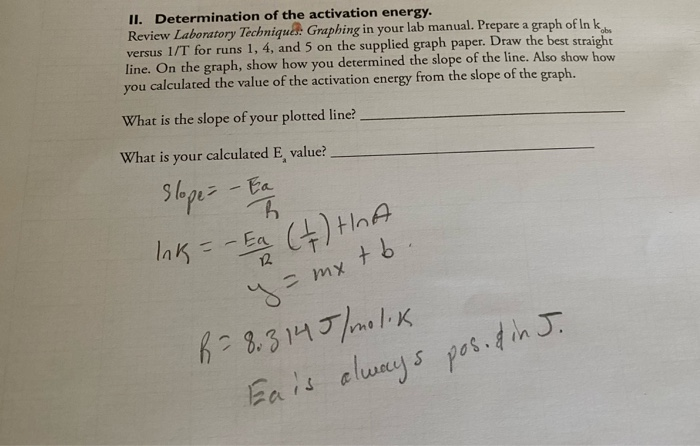 II. Determination of the activation energy.
Review Laboratory Techniques: Graphing in your lab manual. Prepare a graph of ln k obs
versus 1/T for runs 1, 4, and 5 on the supplied graph paper. Draw the best straight
line. On the graph, show how you determined the slope of the line. Also show how
you calculated the value of the activation energy from the slope of the graph.
What is the slope of your plotted line?
What is your calculated Ea value?
Slope = - Ea/R
lnK = - Ea/R (1/T) + lnA
y = mx + b.
R = 8.314 J/mol·K
Ea is always pos. & in J.